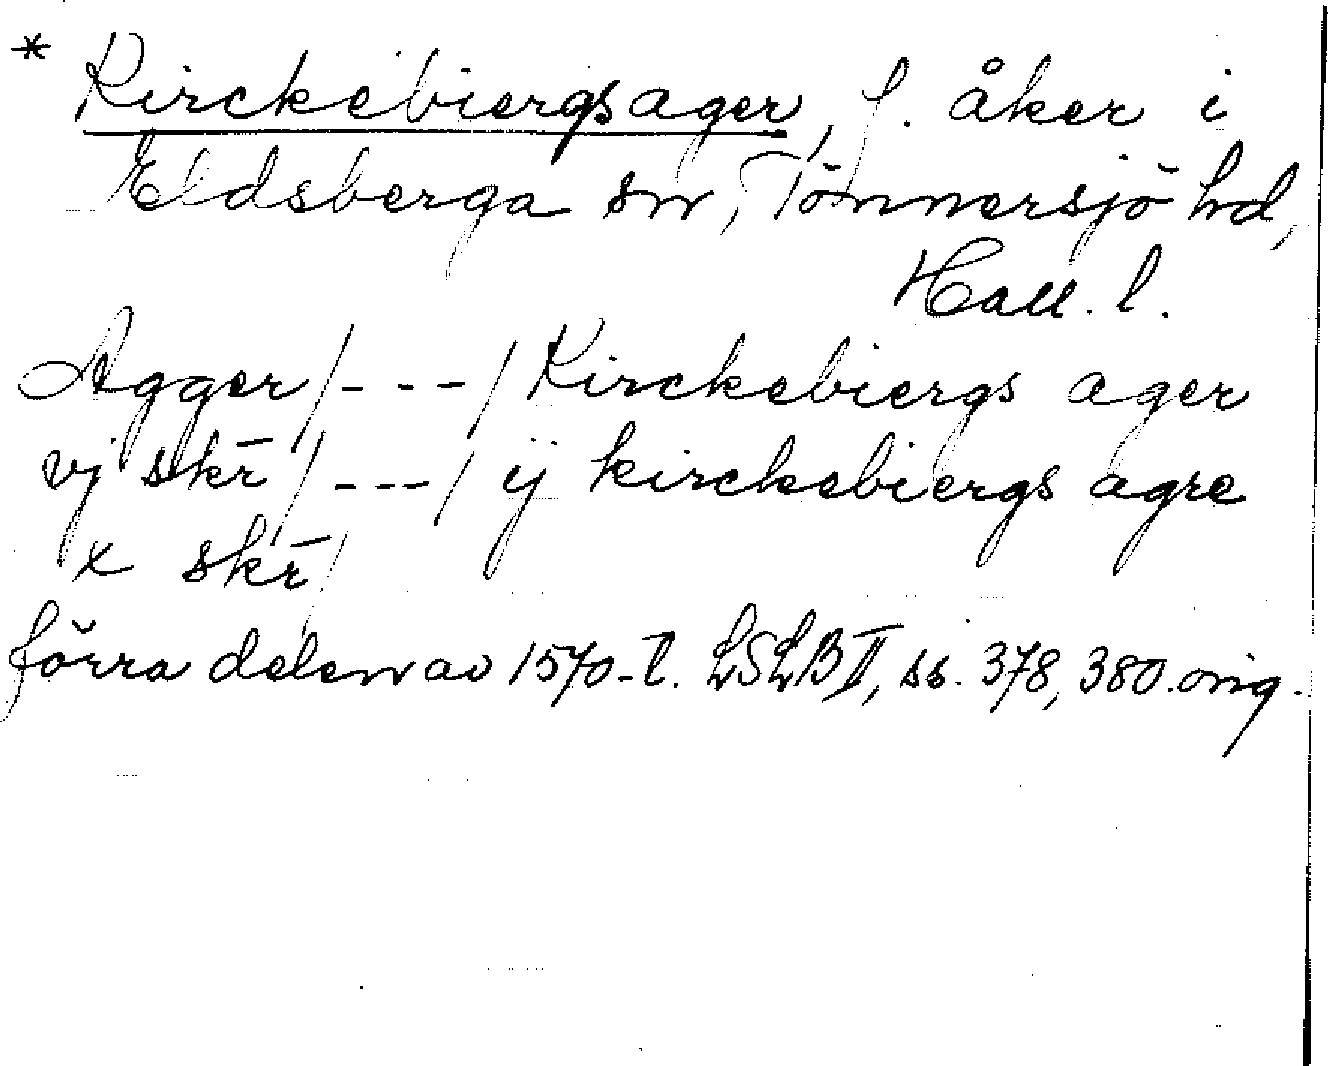 * Kirckebiergsager, f. åker i
Eldsberga sn, Tönnersjö hd,
Hall. l.
Agger /---/ Kirckebiergs ager
vj skr̄ /---/ ij kirckebiergs agre
x skr̄ /
förra delen av 1570-t. LSLB II, ss. 378, 380. orig.